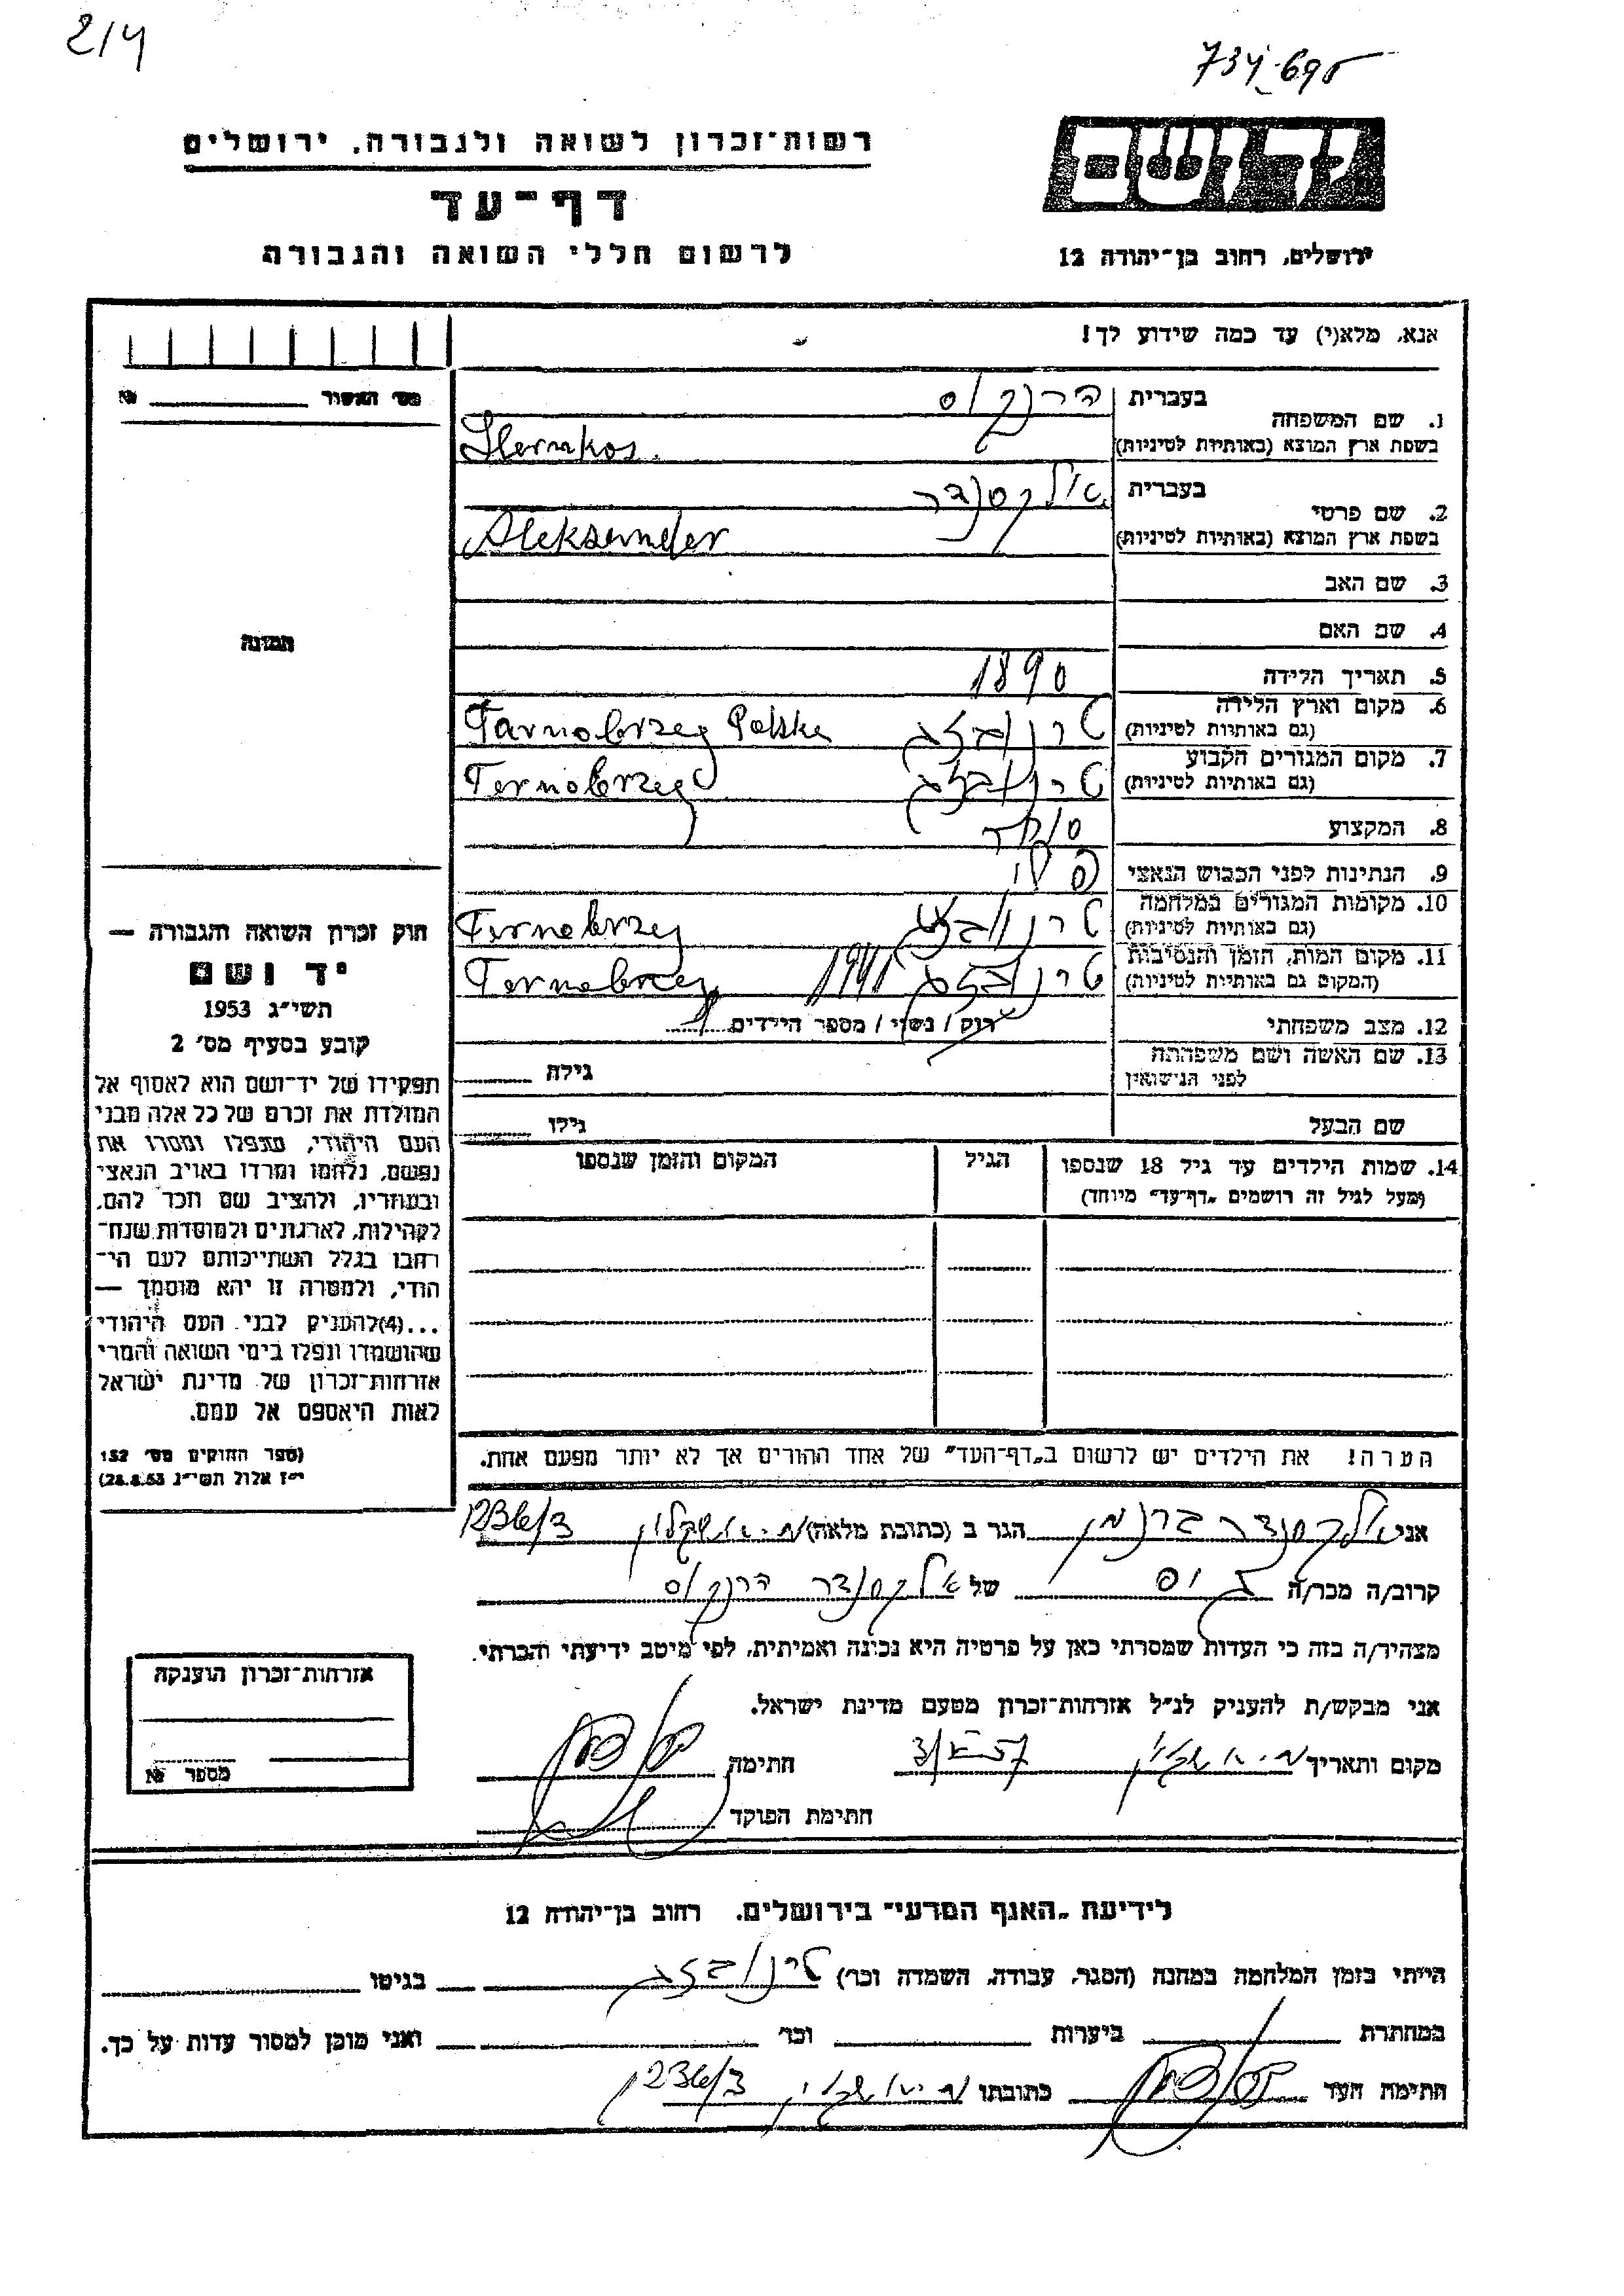 2/4
734-695
רשות־זכרון לשואה ולגבורה, ירושלים
דף־עד
לרשום חללי השואה והגבורה
ידושם
ירושלים, רחוב בן־יהודה 12
אנא, מלא(י) עד כמה שידוע לך!
מס׳ האשור № 
1. שם המשפחה בעברית הרנקוס
בשפת ארץ המוצא (באותיות לטיניות) Hernkos.
2. שם פרטי בעברית אלכסנדר
בשפת ארץ המוצא (באותיות לטיניות) Aleksander
3. שם האב
4. שם האם
תמונה
5. תאריך הלידה 1890
6. מקום וארץ הלידה
(גם באותיות לטיניות) טרנובזג Tarnobrzeg Polska
7. מקום המגורים הקבוע
(גם באותיות לטיניות) טרנובזג Ternobrzeg
8. המקצוע סוחר
9. הנתינות לפני הכבוש הנאצי
10. מקומות המגורים במלחמה
(גם באותיות לטיניות) Ternobrzeg
11. מקום המות, הזמן והנסיבות
(המקום גם באותיות לטיניות) טרנובזג 1941 Ternobrzeg
12. מצב משפחתי רוק / נשוי / מספר הילדים
13. שם האשה ושם משפחתה
לפני הנישואין גילה
שם הבעל גילו
14. שמות הילדים עד גיל 18 שנספו הגיל המקום והזמן שנספו
(מעל לגיל זה רושמים „דף־עד״ מיוחד)
חוק זכרון השואה והגבורה —
יד ושם
תשי״ג 1953
קובע בסעיף מס׳ 2
תפקידו של יד־ושם הוא לאסוף אל
המולדת את זכרם של כל אלה מבני
העם היהודי, שנפלו ומסרו את
נפשם, נלחמו ומרדו באויב הנאצי
ובעוזריו, ולהציב שם וזכר להם,
לקהילות, לארגונים ולמוסדות שנח־
רחבו בגלל השתייכותם לעם הי־
הודי, ולמטרה זו יהא מוסמך —
...(4)להעניק לבני העם היהודי
שהושמדו ונפלו בימי השואה והמרי
אזרחות־זכרון של מדינת ישראל
לאות היאספם אל עמם.
(ספר החוקים מס׳ 132
י״ז אלול תשי״ג 28.8.53)
הערה! את הילדים יש לרשום ב„דף־העד״ של אחד ההורים אך לא יותר מפעם אחת.
אני אלכסנדר ברנמן הגר ב (כתובת מלאה) אשקלון 1236/3
קרוב/ה מכר/ה של אלכסנדר הרנקוס
מצהיר/ה בזה כי העדות שמסרתי כאן על פרטיה היא נכונה ואמיתית, לפי מיטב ידיעתי והכרתי.
אני מבקש/ת להעניק לנ״ל אזרחות־זכרון מטעם מדינת ישראל.
מקום ותאריך אשקלון חתימה
חתימת הפוקד
אזרחות־זכרון הוענקה
מספר №
לידיעת „האגף המדעי״ בירושלים, רחוב בן־יהודה 12
הייתי בזמן המלחמה במחנה (הסגר, עבודה, השמדה וכו׳) טרנובזג בגיטו
במחתרת ביערות וכו׳ ואני מוכן למסור עדות על כך.
חתימת העד כתובתו אשקלון 1236/3